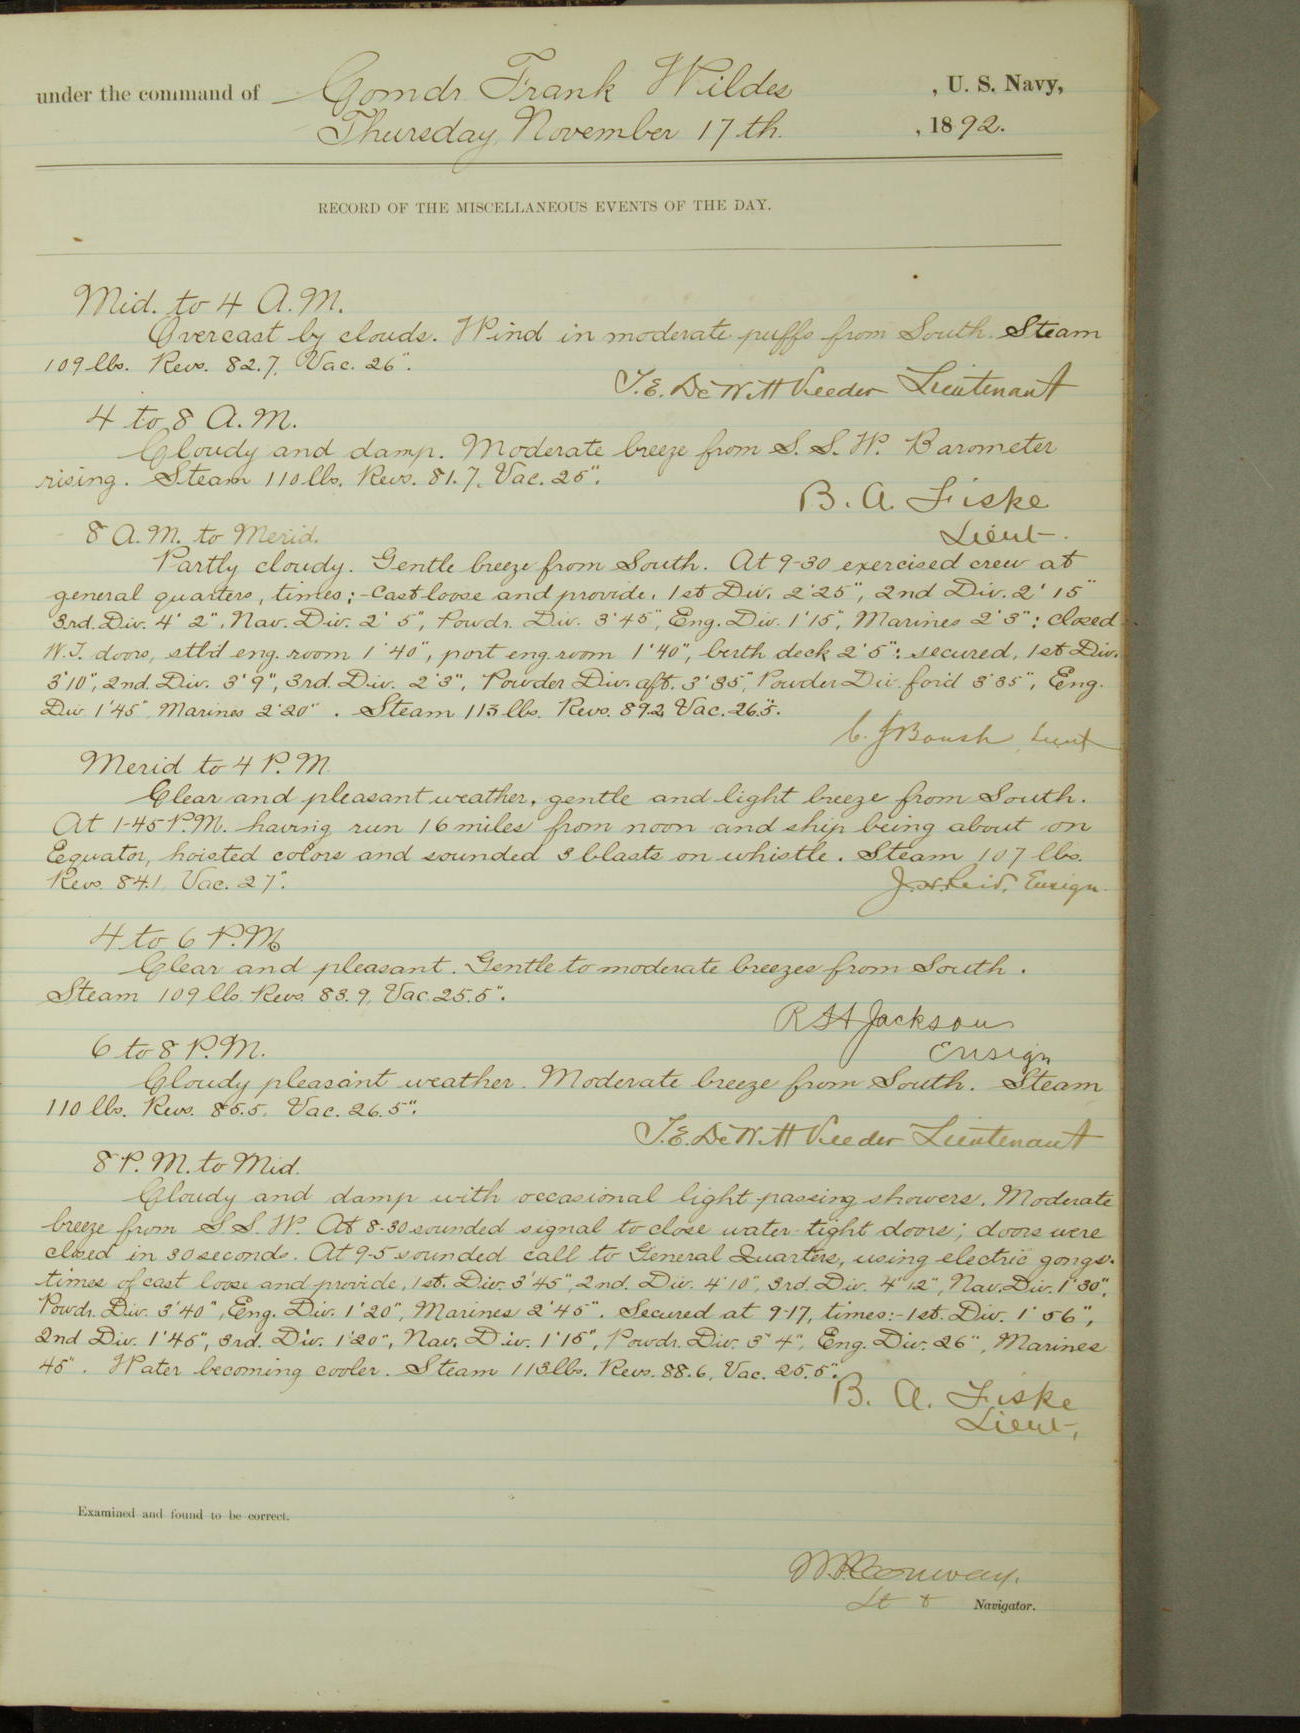 under the command of Comdr Frank Wildes, U. S. Navy,
Thursday, November 17th., 1892.
RECORD OF THE MISCELLANEOUS EVENTS OF THE DAY.
Mid. to 4 A.M.
Overcast by clouds. Wind in moderate puffs from South. Steam
109 lbs. Revs. 82.7, Vac. 26".
T.E. DeWitt Veeder Lieutenant
4 to 8 A.M.
Cloudy and damp. Moderate breeze from S. S. W. Barometer
rising. Steam 110 lbs. Revs. 81.7, Vac. 25".
B. A. Fiske
Lieut.
8 A.M. to Merid.
Partly cloudy. Gentle breeze from South. At 9-30 exercised crew at
general quarters, times:- Cast loose and provide, 1st Div. 2'25", 2nd Div. 2' 15"
3rd. Div. 4' 2", Nav. Div. 2' 5", Powdr. Div. 3'45", Eng. Div. 1'15", Marines 2'3": closed
W.T. doors, stb'd eng. room 1'40", port eng. room 1'40", berth deck 2'5": secured, 1st Div.
3'10", 2nd. Div. 3'9", 3rd. Div. 2'3", Powder Div. aft. 3'35", Powder Div. for'd 3'35", Eng.
Div. 1'45" Marines 2'20". Steam 113 lbs. Revs. 89.2, Vac. 26.5".
C. J. Boush, Lieut
Merid to 4 P.M.
Clear and pleasant weather, gentle and light breeze from South.
At 1-45 P.M. having run 16 miles from noon and ship being about on
Eequator, hoisted colors and sounded 3 blasts on whistle. Steam 107 lbs.
Revs. 84.1 Vac. 27".
J. H. Reid, Ensign.
4 to 6 P.M.
Clear and pleasant. Gentle to moderate breezes from South.
Steam 109 lbs. Revs. 83.9, Vac. 25.5".
R H Jackson
Ensign
6 to 8 P.M.
Cloudy pleasant weather. Moderate breeze from South. Steam
110 lbs. Revs. 85.5, Vac. 26.5".
T.E. DeWitt Veeder Lieutenant
8 P.M. to Mid.
Cloudy and damp with occasional light passing showers. Moderate
breeze from S S. W. At 8-30 sounded signal to close water-tight doors; doors were
closed in 30 seconds. At 9-5 sounded call to General Quarters, using electric gongs.
times of cast loose and provide, 1st. Div. 3'45", 2nd. Div. 4'10", 3rd. Div. 4'12", Nav. Div. 1'30",
Powdr. Div. 3'40", Eng. Div. 1'20", Marines 2'45". Secured at 9-17, times:- 1st. Div. 1'56",
2nd Div. 1'45", 3rd. Div. 1'20", Nav. Div. 1'15", Powdr. Div. 3'4", Eng. Div. 26", Marines
45". Water becoming cooler. Steam 113 lbs. Revs. 88.6, Vac. 25.5".
B. A. Fiske
Lieut.,
Examined and found to be correct.
Conway.
Lt & Navigator.